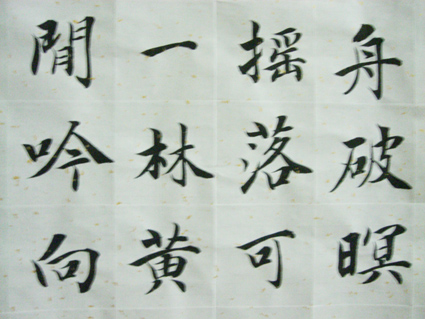 舟破暝
摇落可
一林黄
閒吟向